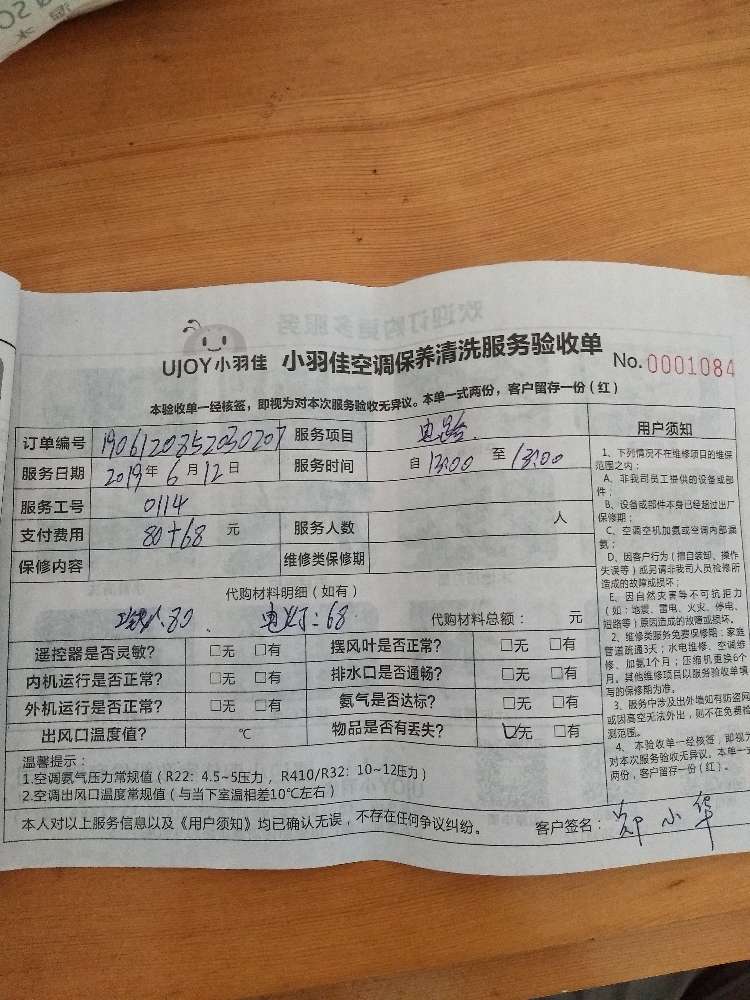 UJOY小羽佳 小羽佳空调保养清洗服务验收单 No.0001084
本验收单一经核签，即视为对本次服务验收无异议。本单一式两份，客户留存一份（红）
订单编号 1906120852030207 服务项目 电路
服务日期 2019年6月12日 服务时间 自13:00至13:00
服务工号 0114
支付费用 80+68 元 服务人数 人
保修内容 维修类保修期
代购材料明细（如有）
80 电灯：68 代购材料总额： 元
遥控器是否灵敏？ □无 □有 摆风叶是否正常？ □无 □有
内机运行是否正常？ □无 □有 排水口是否通畅？ □无 □有
外机运行是否正常？ □无 □有 氨气是否达标？ □无 □有
出风口温度值？ ℃ 物品是否有丢失？ ☑无 □有
温馨提示：
1.空调氨气压力常规值（R22：4.5~5压力，R410/R32：10~12压力）
2.空调出风口温度常规值（与当下室温相差10℃左右）
本人对以上服务信息以及《用户须知》均已确认无误，不存在任何争议纠纷。 客户签名：郑小华
用户须知
1、下列情况不在维修项目的维保
范围之内：
A、非我司员工提供的设备或部
件；
B、设备或部件本身已经超过出厂
保修期；
C、空调空机加氨或空调内部漏
氨；
D、因客户行为（擅自装卸、操作
失误等）或另请非我司人员检修所
造成的故障或损坏；
E、因自然灾害等不可抗拒力
（如：地震、雷电、火灾、停电、
短路等）原因造成的故障或损坏。
2、维修类服务免费保修期：家庭
管道疏通3天；水电维修、空调维
修、加氨1个月；压缩机更换6个
月。其他维修项目以服务验收单填
写的保修期为准。
3、服务中涉及出外墙如有防盗网
或因高空无法外出，则不在免费检
测范围。
4、本验收单一经核签，即视为
对本次服务验收无异议。本单一式
两份，客户留存一份（红）。